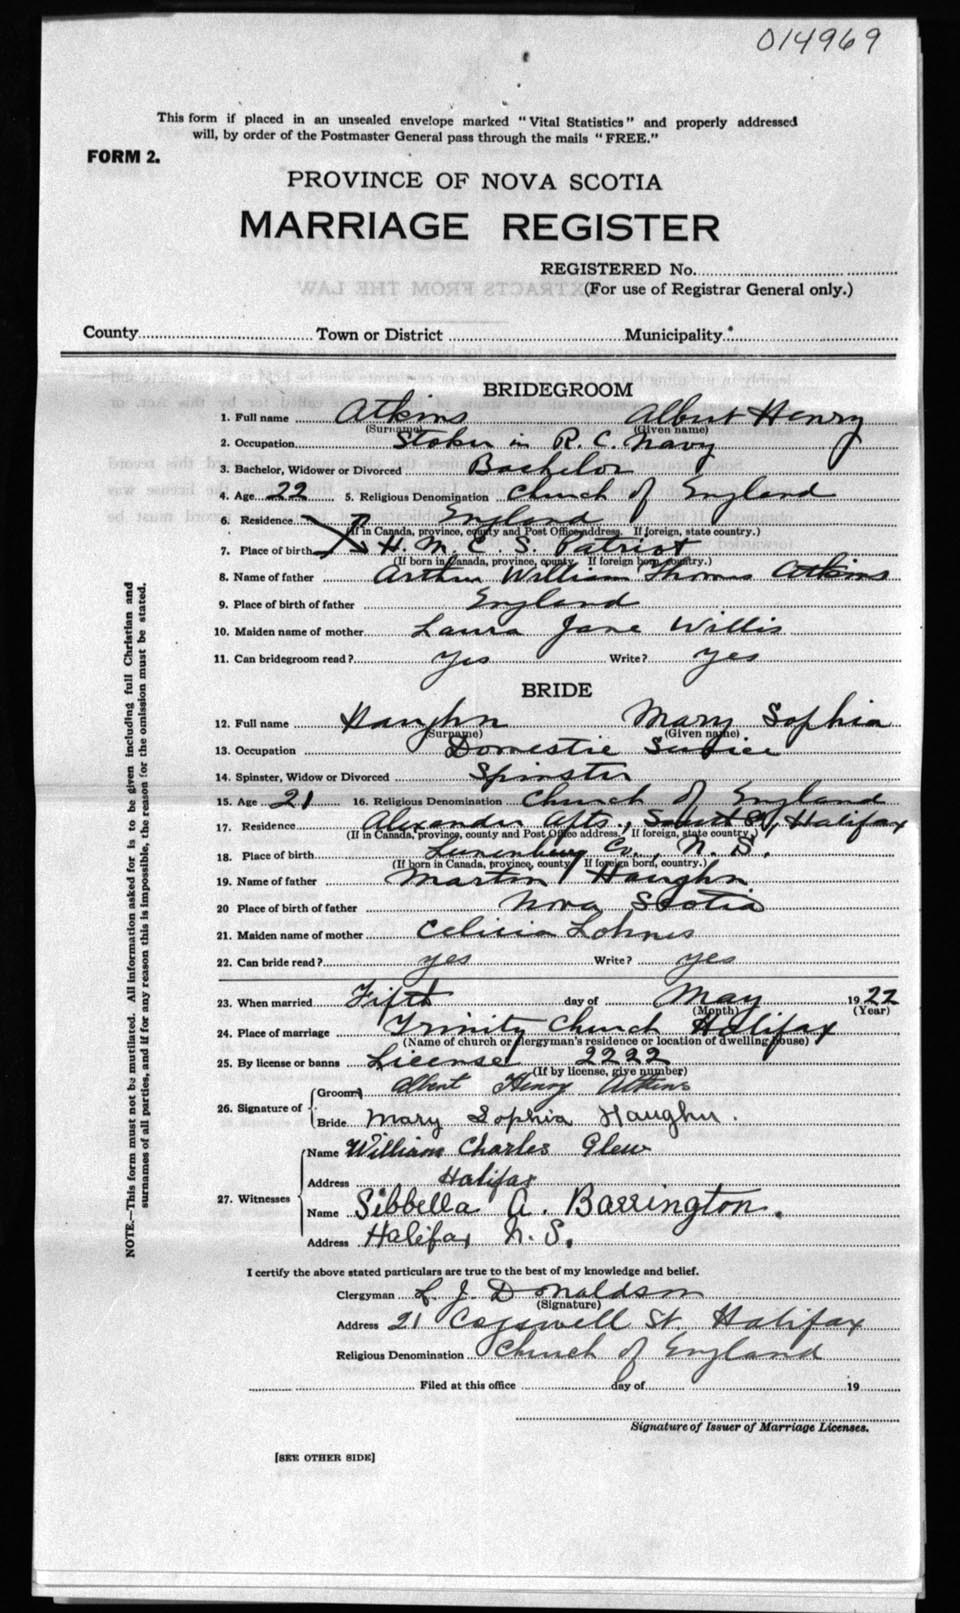 014969
This form if placed in an unsealed envelope marked "Vital Statistics" and properly addressed
will, by order of the Postmaster General pass through the mails "FREE."
FORM 2.
PROVINCE OF NOVA SCOTIA
MARRIAGE REGISTER
REGISTERED No.
(For use of Registrar General only.)
County Town or District Municipality
BRIDEGROOM
1. Full name Atkins Albert Henry
(Surname) (Given name)
2. Occupation Stoker in R. C. Navy
3. Bachelor, Widower or Divorced Bachelor
4. Age 22 5. Religious Denomination Church of England
6. Residence England
(If in Canada, province, county and Post Office address. If foreign, state country.)
7. Place of birth H. M. C. S. Patriot
(If born in Canada, province, county. If foreign born, country.)
8. Name of father Arthur William Thomas Atkins
9. Place of birth of father England
10. Maiden name of mother Laura Jane Willis
11. Can bridegroom read? yes Write? yes
BRIDE
12. Full name Haughn Mary Sophia
(Surname) (Given name)
13. Occupation Domestic Service
14. Spinster, Widow or Divorced Spinster
15. Age 21 16. Religious Denomination Church of England
17. Residence Alexander Apts., South St, Halifax
(If in Canada, province, county and Post Office address. If foreign, state country.)
18. Place of birth Lunenburg Co., N. S.
(If born in Canada, province, county. If foreign born, country.)
19. Name of father Martin Haughn
20 Place of birth of father Nova Scotia
21. Maiden name of mother Celicia Lohnes
22. Can bride read? yes Write? yes
23. When married Fifth day of May 1922
(Month) (Year)
24. Place of marriage Trinity Church Halifax
(Name of church or clergyman's residence or location of dwelling house)
25. By license or banns License 2222
(If by license, give number)
26. Signature of Groom Albert Henry Atkins
Bride Mary Sophia Haughn.
27. Witnesses Name William Charles Glew
Address Halifax
Name Sibbella A. Barrington.
Address Halifax N. S.
I certify the above stated particulars are true to the best of my knowledge and belief.
Clergyman L. J. Donaldson
(Signature)
Address 21 Cogswell St. Halifax
Religious Denomination Church of England
Filed at this office day of 19
Signature of Issuer of Marriage Licenses.
[SEE OTHER SIDE]
NOTE.—This form must not be mutilated. All information asked for is to be given including full Christian and
surnames of all parties, and if for any reason this is impossible, the reason for the omission must be stated.